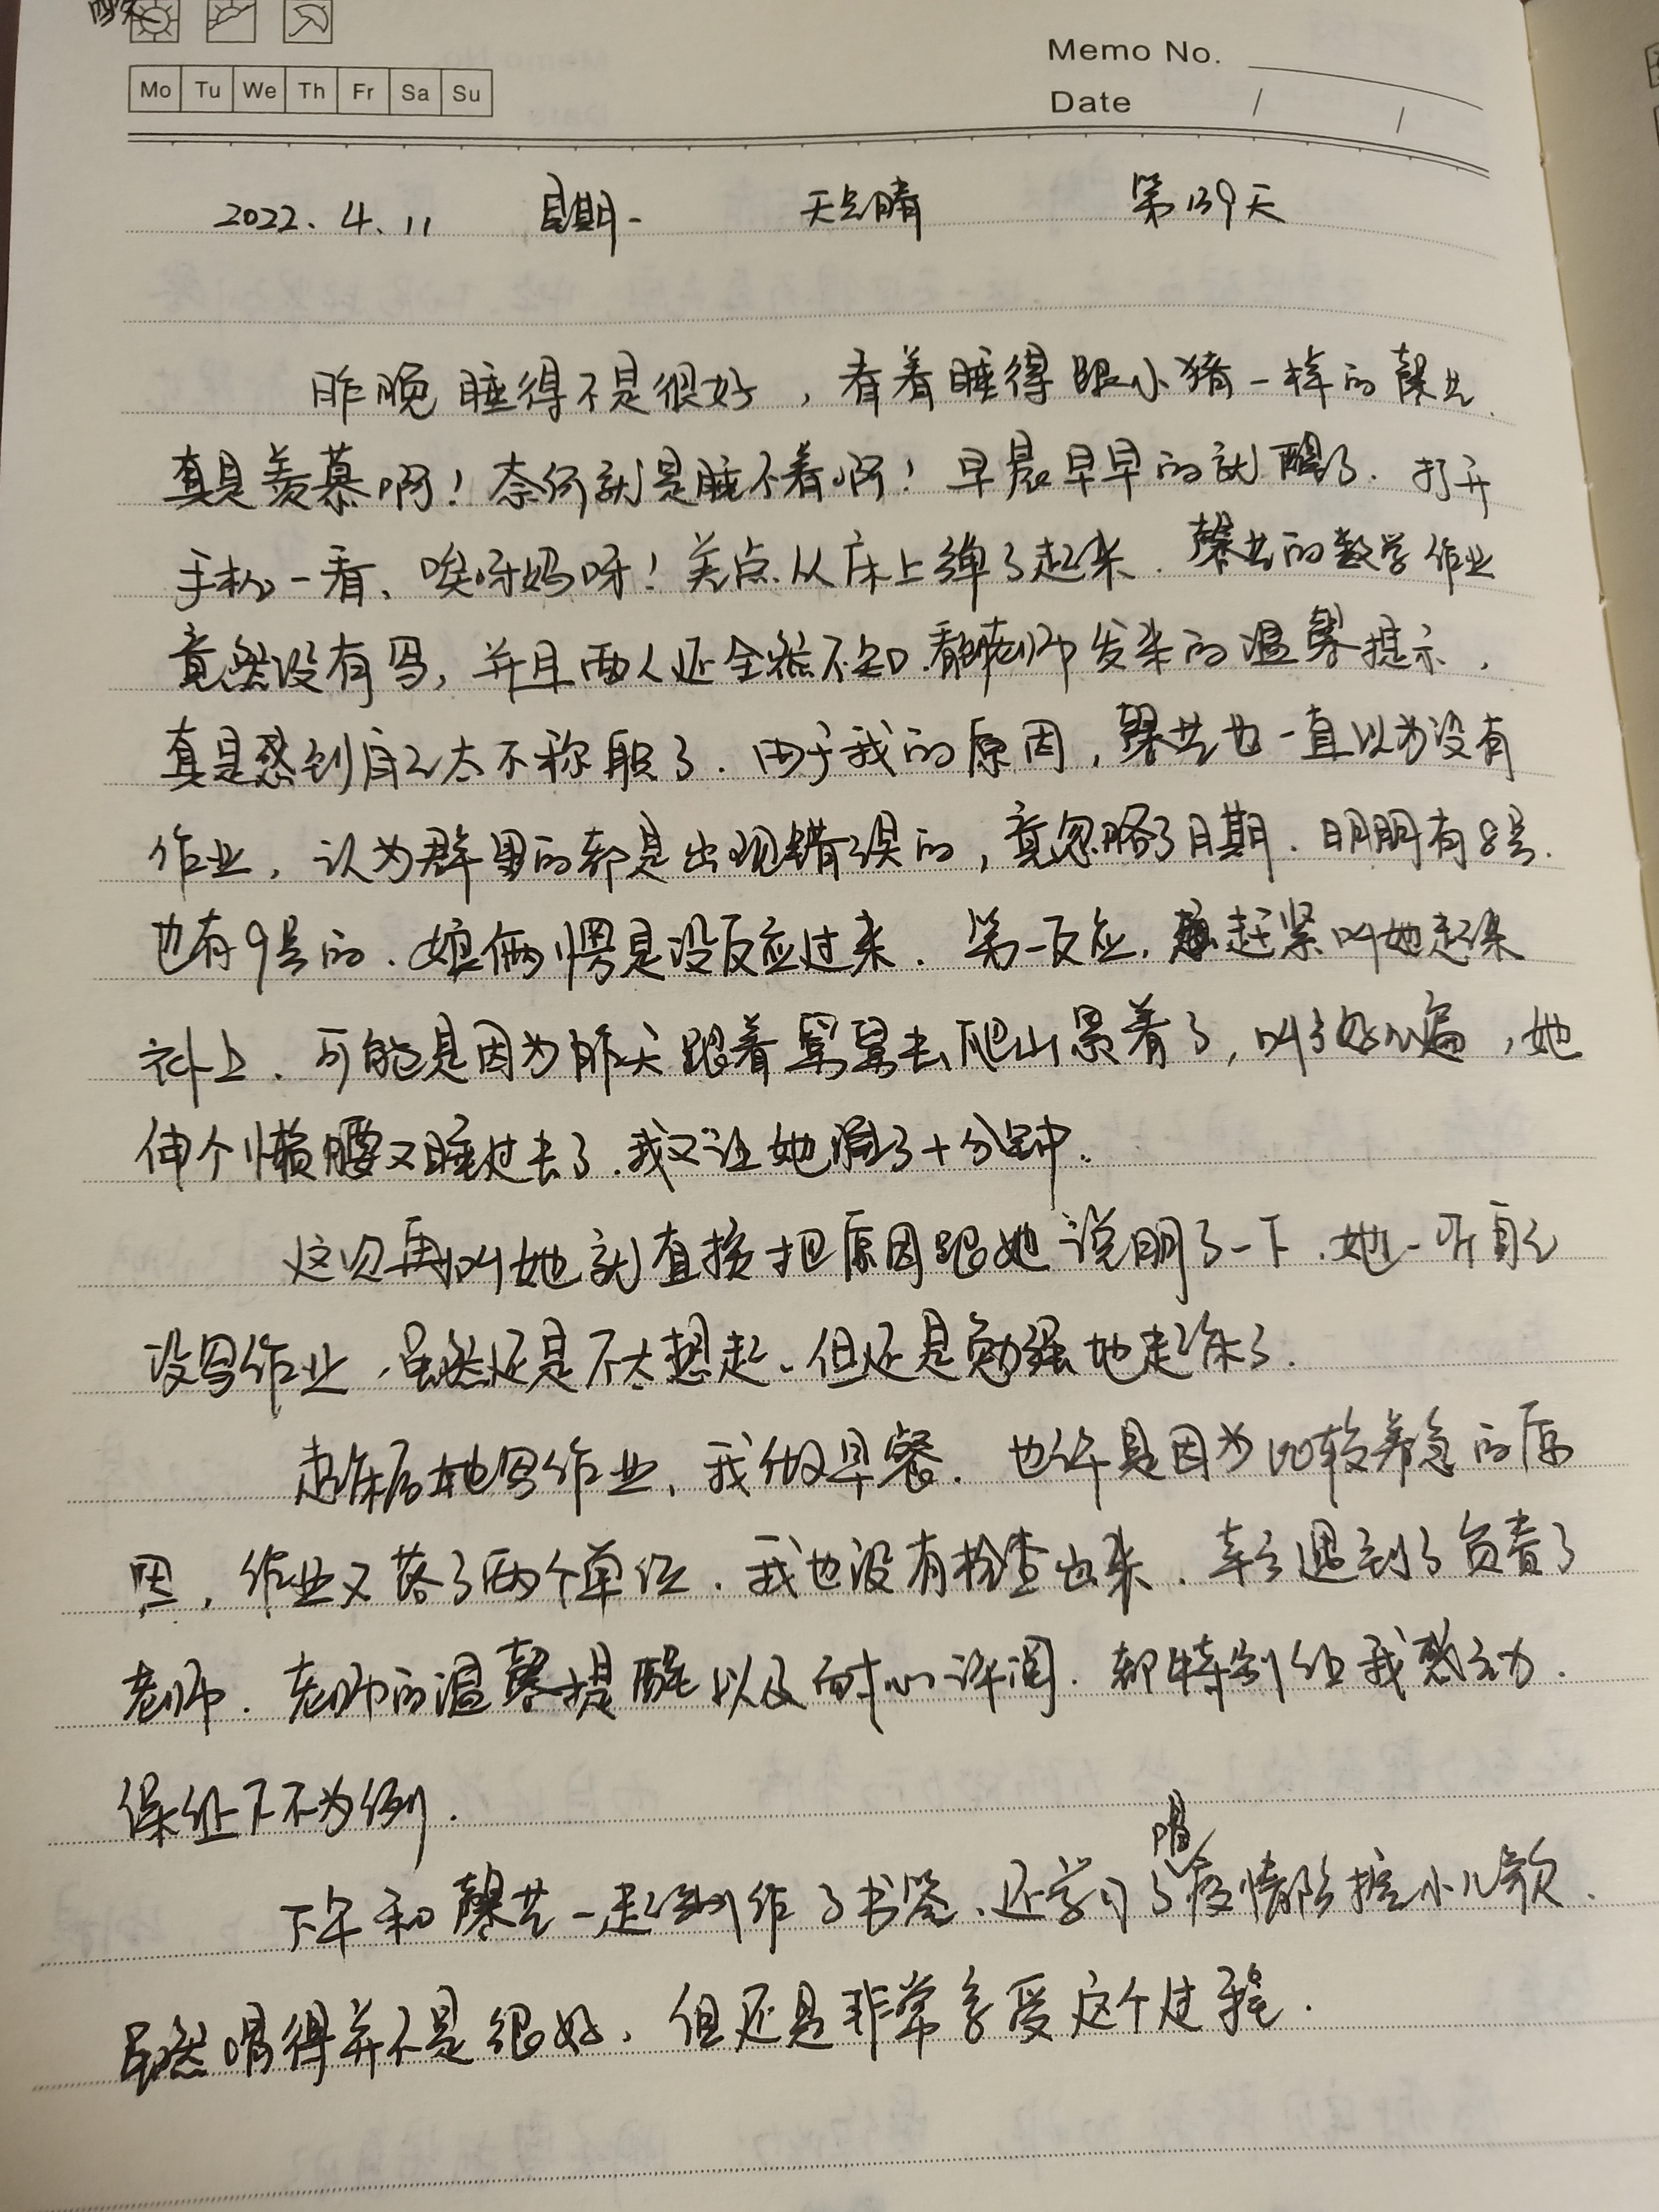 Mo Tu We Th Fr Sa Su
Memo No.
Date / /
2022.4.11 星期一 天气晴 第139天
昨晚睡得不是很好，看着睡得跟小猪一样的馨艺、
真是羡慕啊！奈何就是睡不着啊！早晨早早的就醒了.打开
手机一看、唉呀妈呀！差点从床上弹了起来.馨艺的数学作业
竟然没有写，并且两人还全然不知.看着老师发来的温馨提示，
真是感到自己太不称职了.由于我的原因，馨艺也一直以为没有
作业，认为群里的都是出现错误的，竟忽略了日期.明明有8号.
也有9号的.娘俩愣是没反应过来.第一反应，赶紧叫她起来
补上.可能是因为昨天跟着舅舅去爬山累着了，叫了好几遍，她
伸个懒腰又睡过去了.我又让她眯了十分钟.
这次再叫她就直接把原因跟她说明了一下.她一听自己
没写作业，虽然还是不太想起、但还是勉强地起床了.
起床后她写作业，我做早餐.也许是因为比较着急的原
因，作业又落了两个单位.我也没有检查出来.幸亏遇到了负责了
老师.老师的温馨提醒以及耐心询问.都特别让我感动.
保证下不为例.
下午和馨艺一起制作了书签、还学习了唱疫情防控小儿歌.
虽然唱得并不是很好.但还是非常享受这个过程.